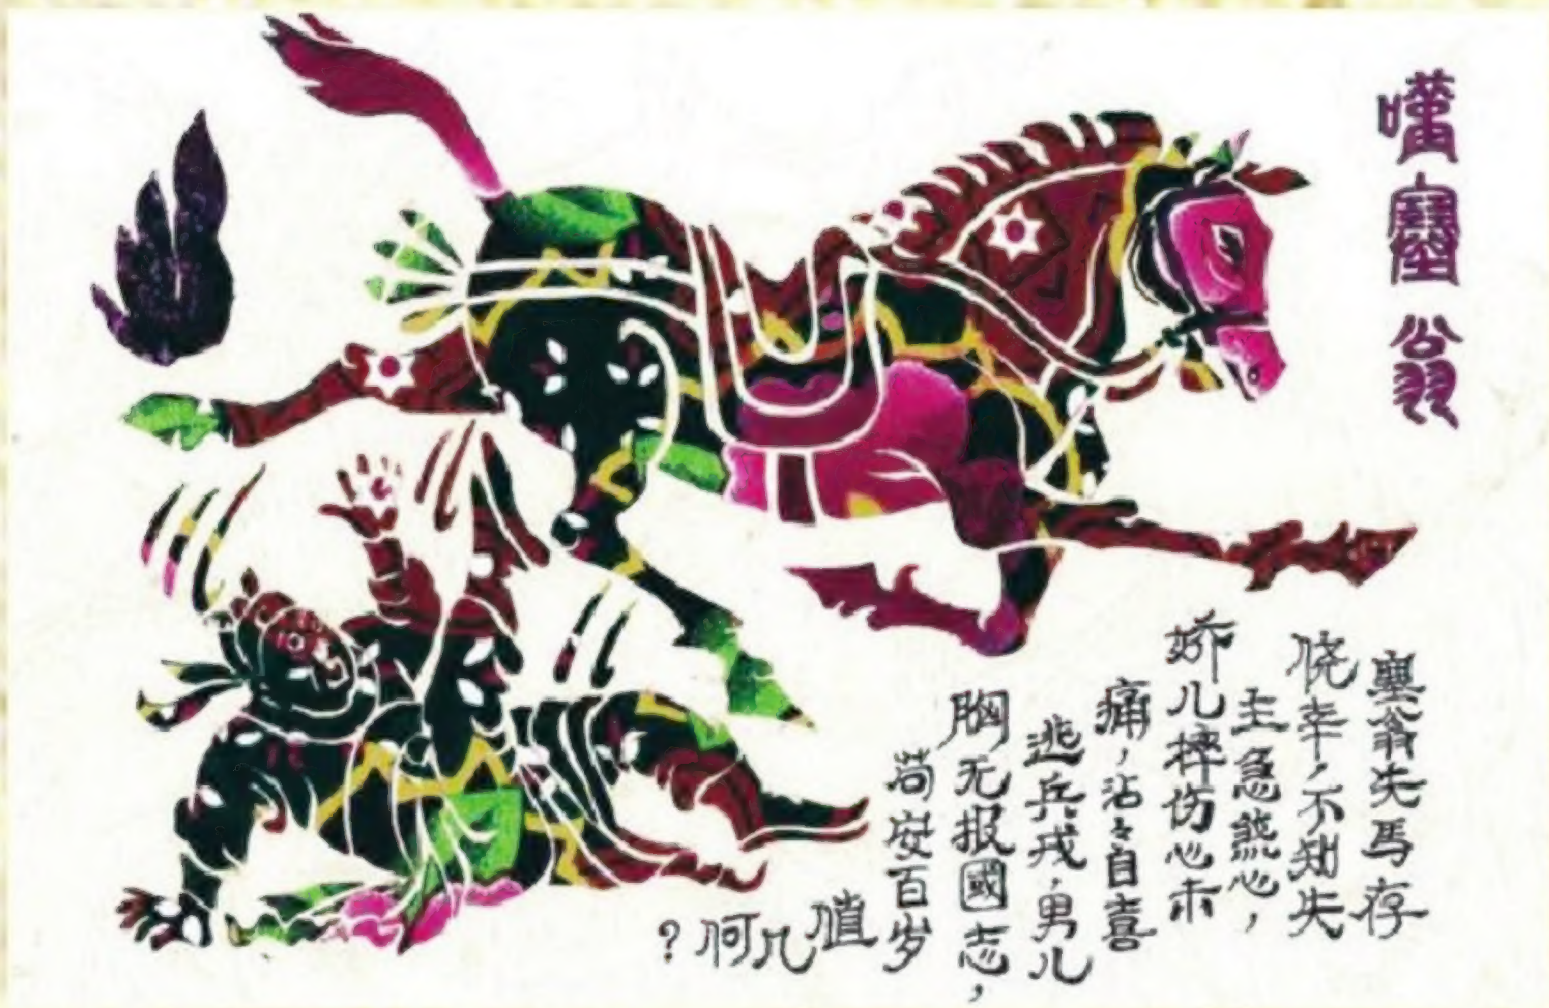 嘆塞翁
塞翁失马存
侥幸,不知失
主急熬心,
娇儿摔伤心未
痛,沾々自喜
逃兵戎,男儿
胸无报國志,
苟安百岁
值几何?